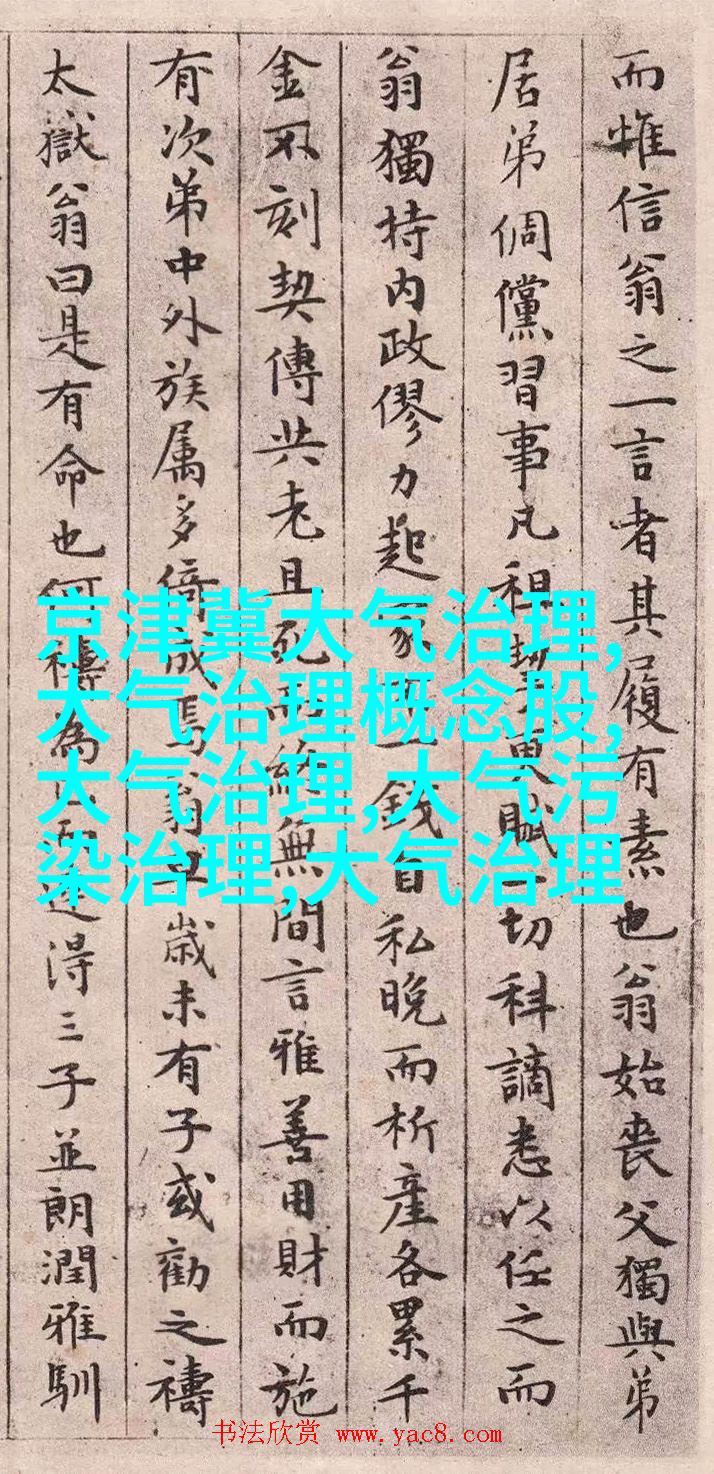 而惟信翁之一言者其履有素也翁始喪父獨與弟
居弟倜儻習事凡租賦一切科謫悉以任之而
翁獨持内政僇力起家一錢自私晚而析産各累千
金不刻契傳共老且死而終無間言雅善用財而施
有次弟中外族属多倚成焉翁早歲未有子或勸之禱
太嶽翁曰是有命也何禱為已而連得三子並朗潤雅馴
京津冀大气治理,
大气治理概念股,
大气治理,大气污
染治理,大气治理
书法欣赏 www.yac8.com